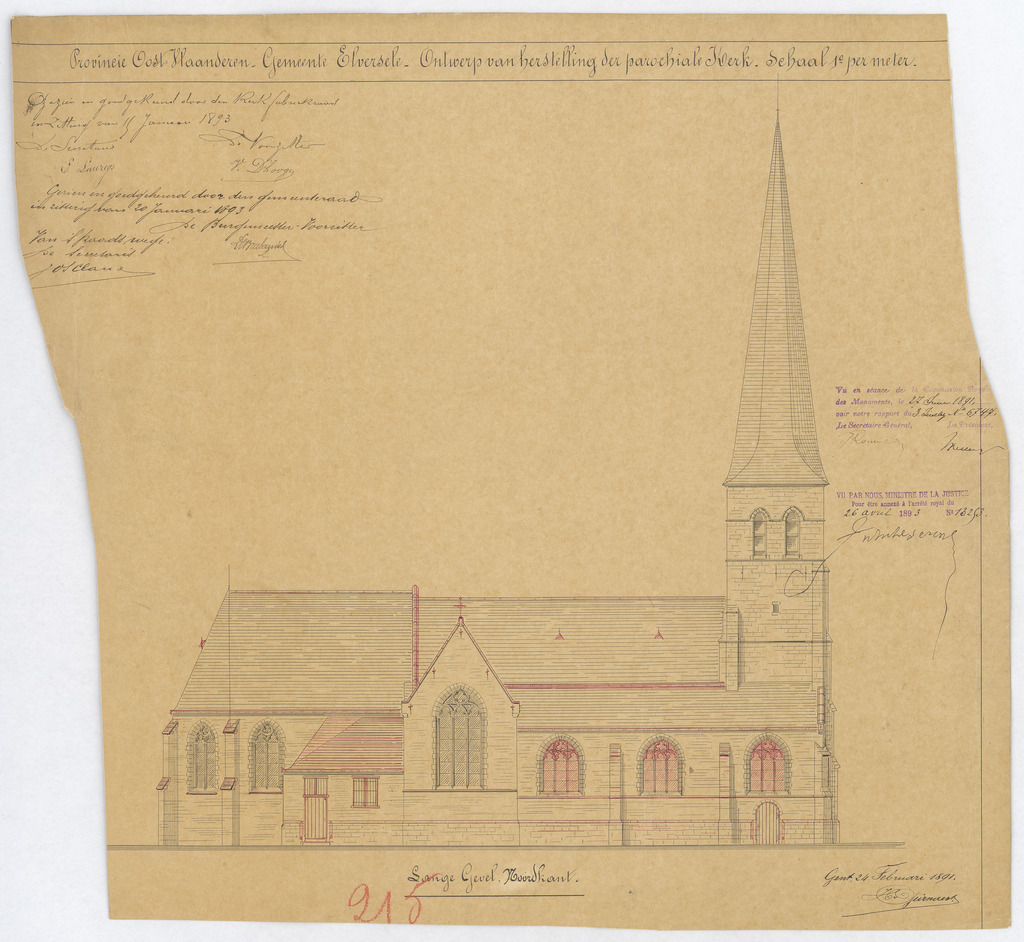 Provincie Oost Vlaanderen. Gemeente Elversele. Ontwerp van herstelling der parochiale Kerk. Schaal 1c per meter.
Gezien en goedgekeurd door den Kerkfabriekraad
in zitting van 15 Januari 1893
De Secretaris De Voorzitter
Gezien en goedgekeurd door den gemeenteraad
in zitting van 20 Januari 1893
De Burgemeester-Voorzitter
Van 's Raadswege:
De Secretaris
Vu en séance de la Commission Royale
des Monuments, le 27 Juin 1891,
voir notre rapport du 3 Juillet N°
Le Secrétaire Général, Le Président,
VU PAR NOUS, MINISTRE DE LA JUSTICE
Pour être annexé à l'arrêté royal du
26 avril 1893 N°
Lange Gevel. Noordkant.
215
Gent, 24 Februari 1891.